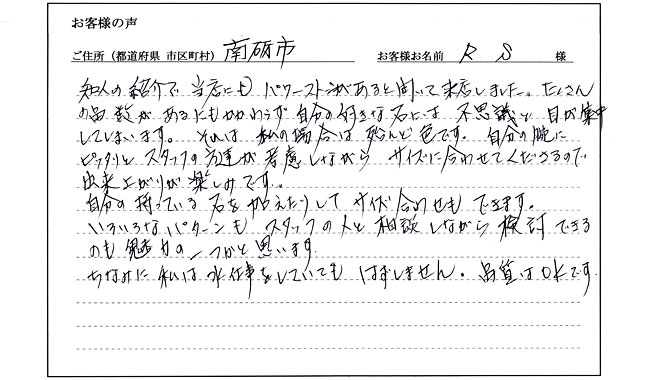 お客様の声
ご住所（都道府県 市区町村） 南砺市 お客様お名前 R S 様
知人の紹介で当店にもパワーストンがあると聞いて来店しました。たくさん
の品数があるにもかかわらず自分の好きな石には 不思議と目が集中
してしまいます。それは 私の場合は殆んど色です。自分の腕に
ピッタリとスタッフの方達が考慮しながら サイズに合わせてくださるので
出来上がりが楽しみです。
自分の持っている石を加えたりして サイズ合わせもできます。
いろいろなパターンも スタッフの人と相談しながら検討できる
のも魅力の一つかと思います
ちなみに 私は水仕事をしていても はずしません。品質はOKです。